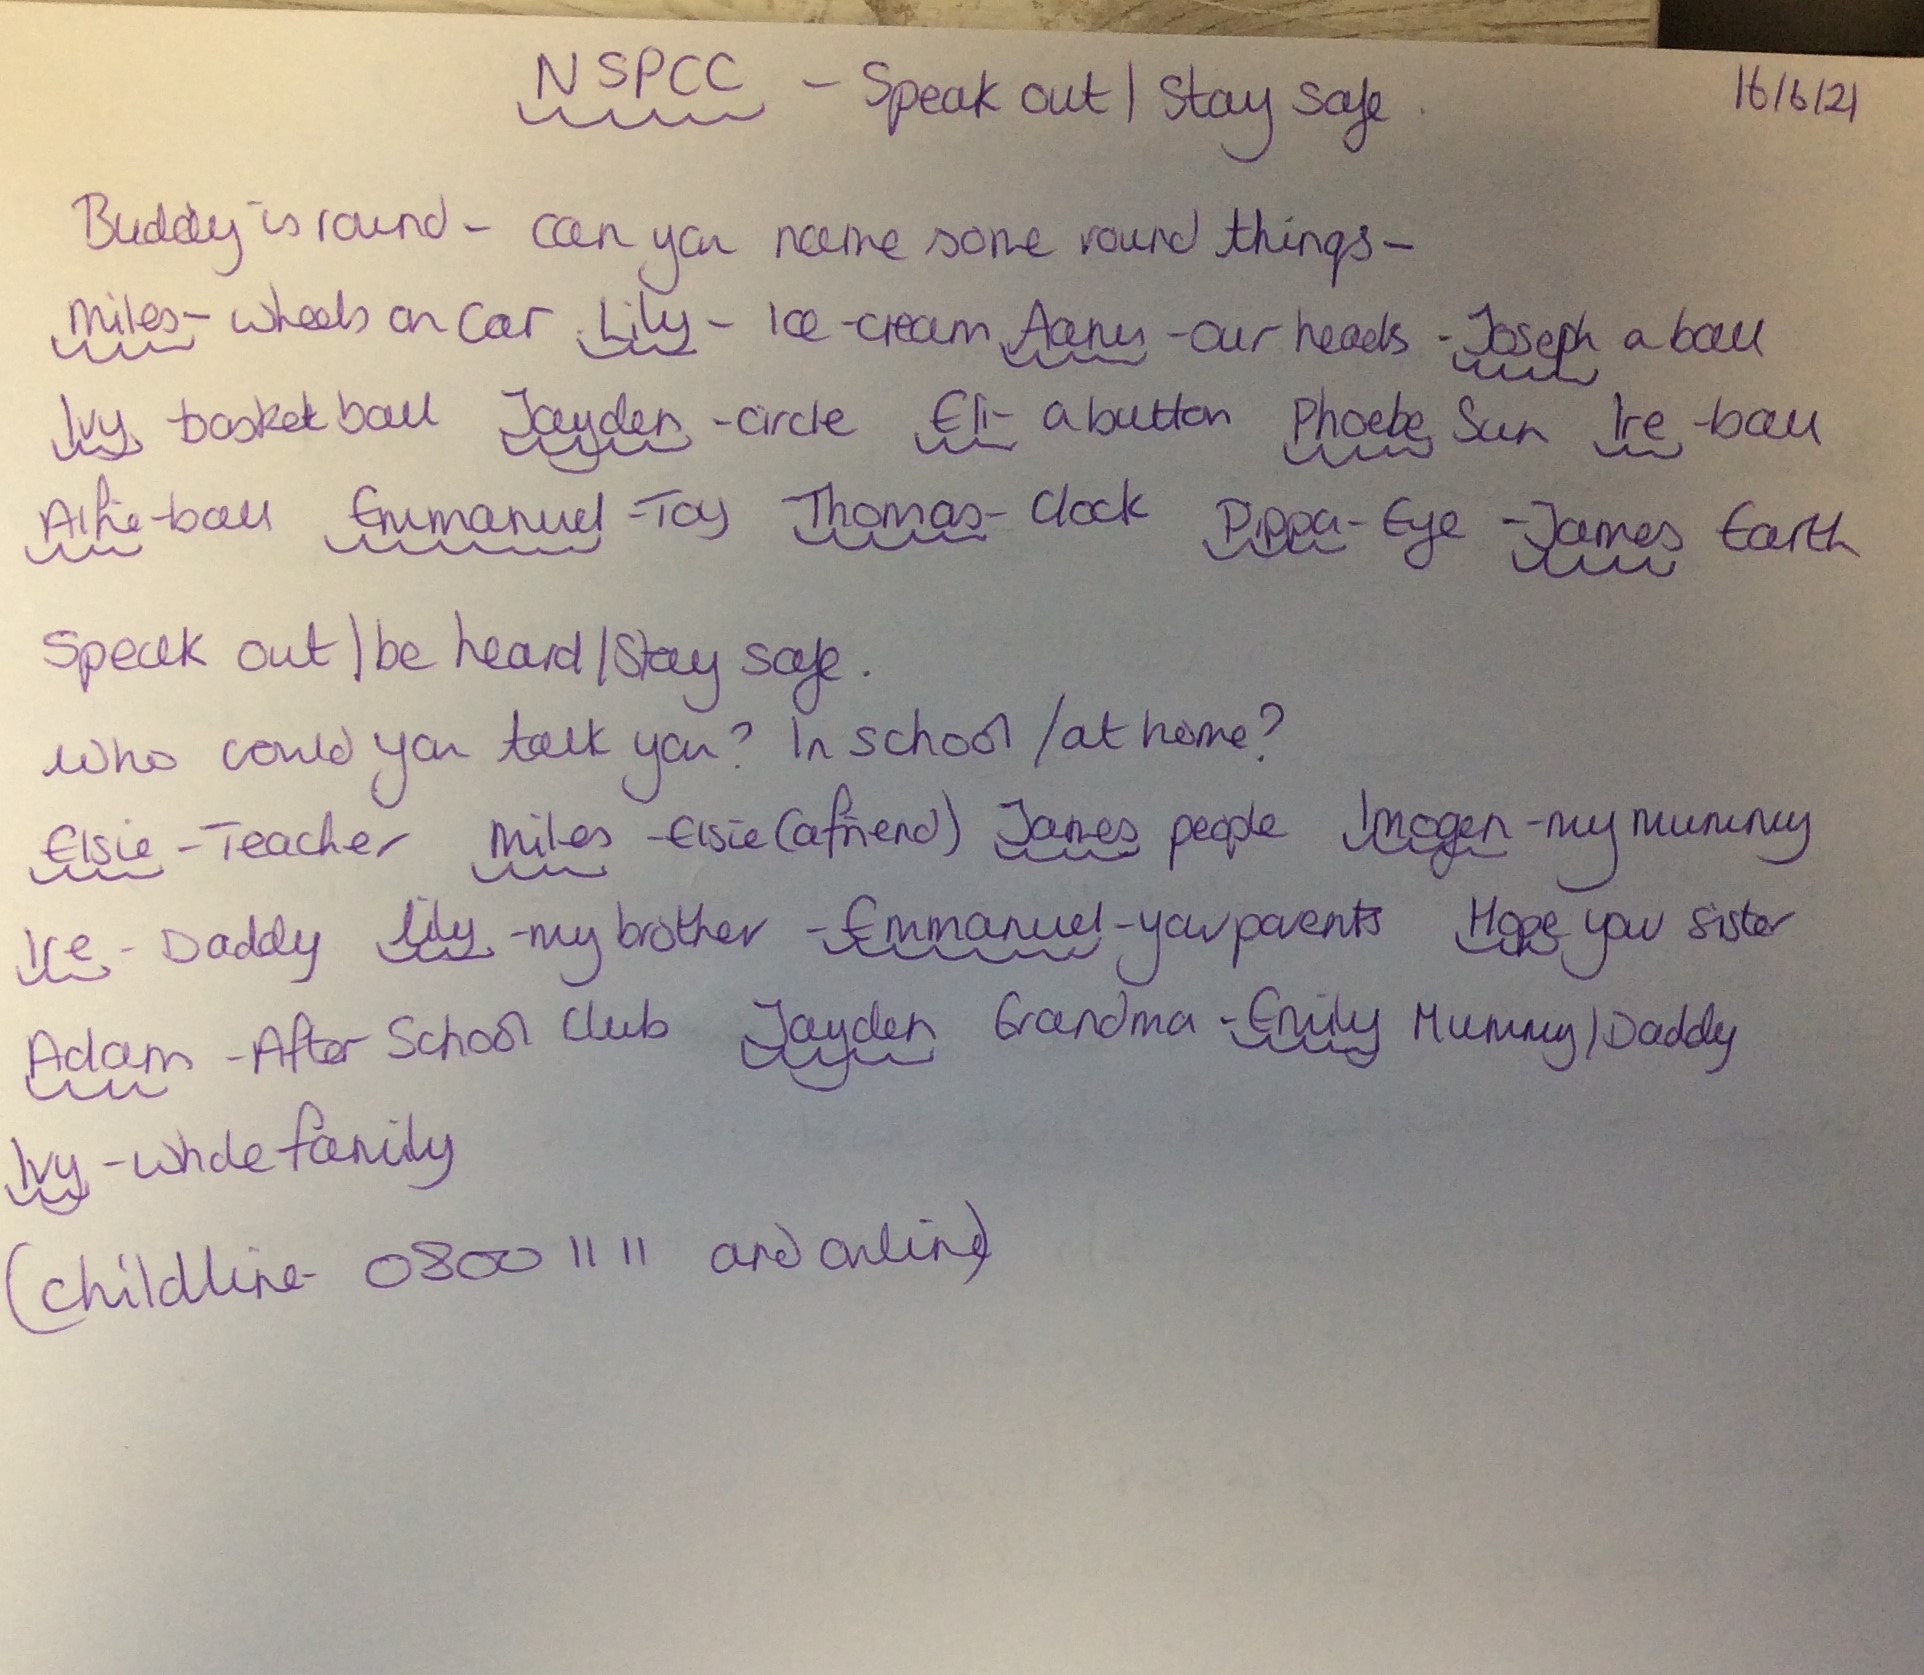 NSPCC - Speak out / Stay safe. 16/6/21
Buddy is round - can you name some round things -
Miles - wheels on car Lily - Ice-cream - our heads - Joseph a ball
Ivy basket ball Jayden - circle Eli - a button Phoebe Sun Ire - ball
Alfie - ball Emmanuel - Toy Thomas - Clock Pippa - Eye - James Earth
Speak out / be heard / Stay safe.
Who could you talk you? In school / at home?
Elsie - Teacher Miles - Elsie (a friend) James people Imogen - my mummy
Ire - Daddy Lily - my brother - Emmanuel - your parents Hope your sister
Adam - After School Club Jayden Grandma - Emily Mummy / Daddy
Ivy - whole family
(childline - 0800 11 11 and online)